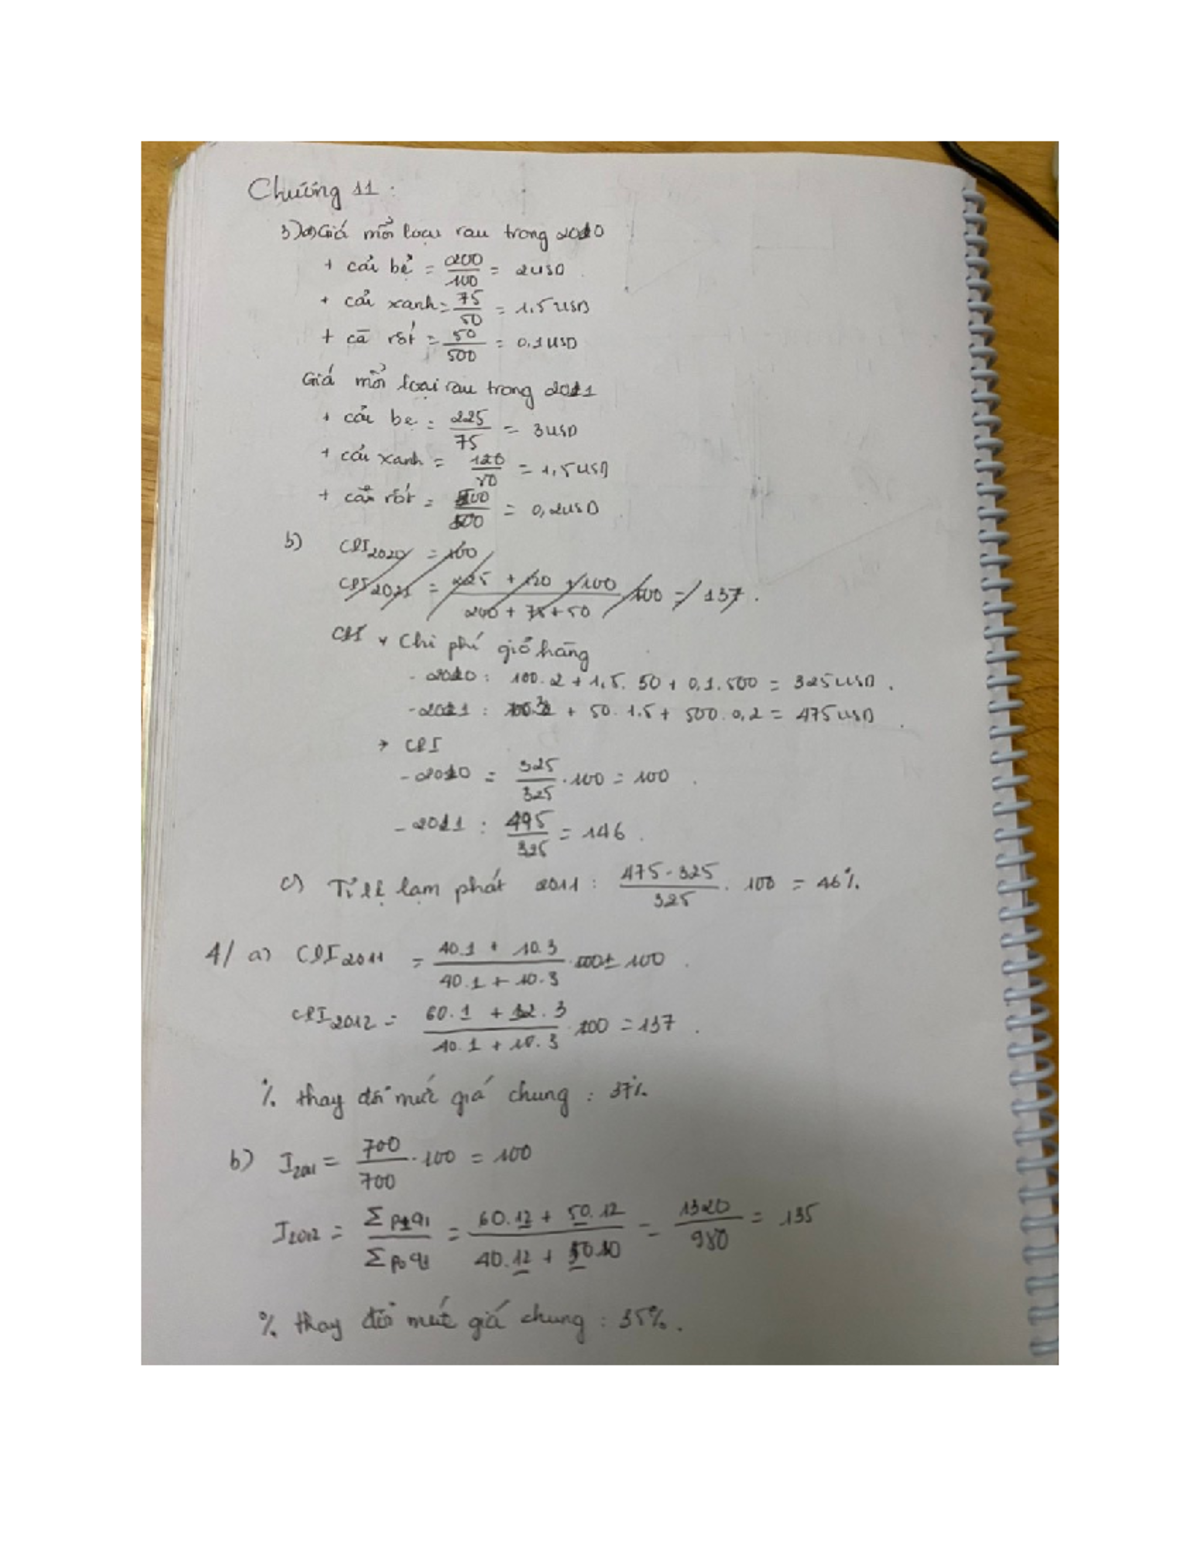 Chương 11 :
3) a) Giá mỗi loại rau trong 2010
+ cải bẹ = 200/100 = 2USD
+ cải xanh = 75/50 = 1,5USD
+ cà rốt = 50/500 = 0,1USD
Giá mỗi loại rau trong 2011
+ cải bẹ = 225/75 = 3USD
+ cải xanh = 120/80 = 1,5USD
+ cà rốt = 100/500 = 0,2USD
b) CPI2020 = 100
CPI2021 = (225 + 120 + 100)/(200 + 75 + 50) 100 = 137.
* Chi phí giỏ hàng
- 2010 : 100.2 + 1,5.50 + 0,1.500 = 325USD.
- 2011 : 100.3 + 50.1,5 + 500.0,2 = 475USD.
* CPI
- 2010 = 325/325 . 100 = 100.
- 2011 : 495/325 = 146.
c) Tỉ lệ lạm phát 2011 : (475 - 325)/325 . 100 = 46%.
4/ a) CPI2011 = (40.1 + 10.3)/(40.1 + 10.3) . 100 = 100.
CPI2012 = (60.1 + 12.3)/(40.1 + 10.3) . 100 = 137.
% thay đổi mức giá chung : 37%.
b) I2011 = 700/700 . 100 = 100
I2012 = Σp1q1/Σp0q1 = (60.12 + 50.12)/(40.12 + 50.10) = 1320/980 = 135
% thay đổi mức giá chung : 35%.